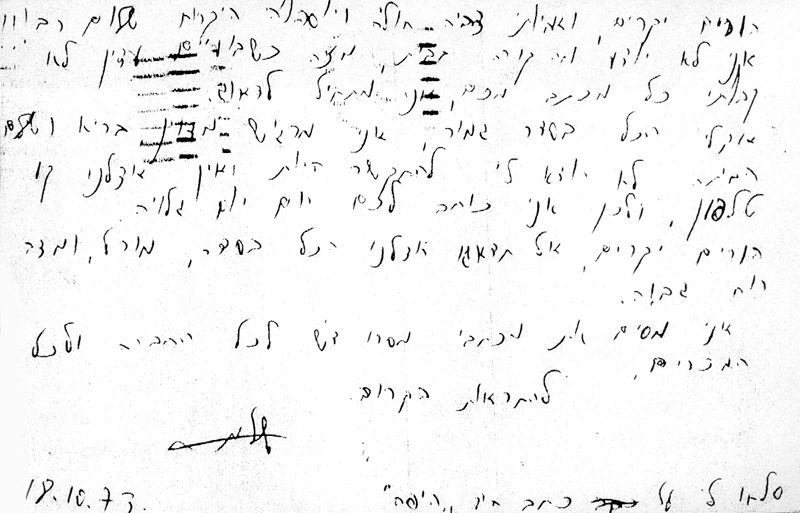 הורים יקרים, ואחיותי צביה חולה ויוסטוה היקרים שלום רב!!!
אני לא יודע מה קורה בבית, מזה כשבועיים עדיין לא
קבלתי כל מכתב מכם, אני מתחיל לדאוג.
אצלי הכל בסדר גמור, אני מרגיש מצוין בריא ושלם
הביתה לא יוצא לי להתקשר היות ואין אצלנו קו
טלפון, ולכן אני כותב לכם יום יום גלויה.
הורים יקרים, אל תדאגו אצלנו הכל בסדר, מורל, ומצב
רוח גבוה.
אני מסיים את מכתבי מסרו ד"ש לכל החברים ולכל
המכרים,
להתראות בקרוב
18.10.73.
סלחו לי על כתב היד "היפה"